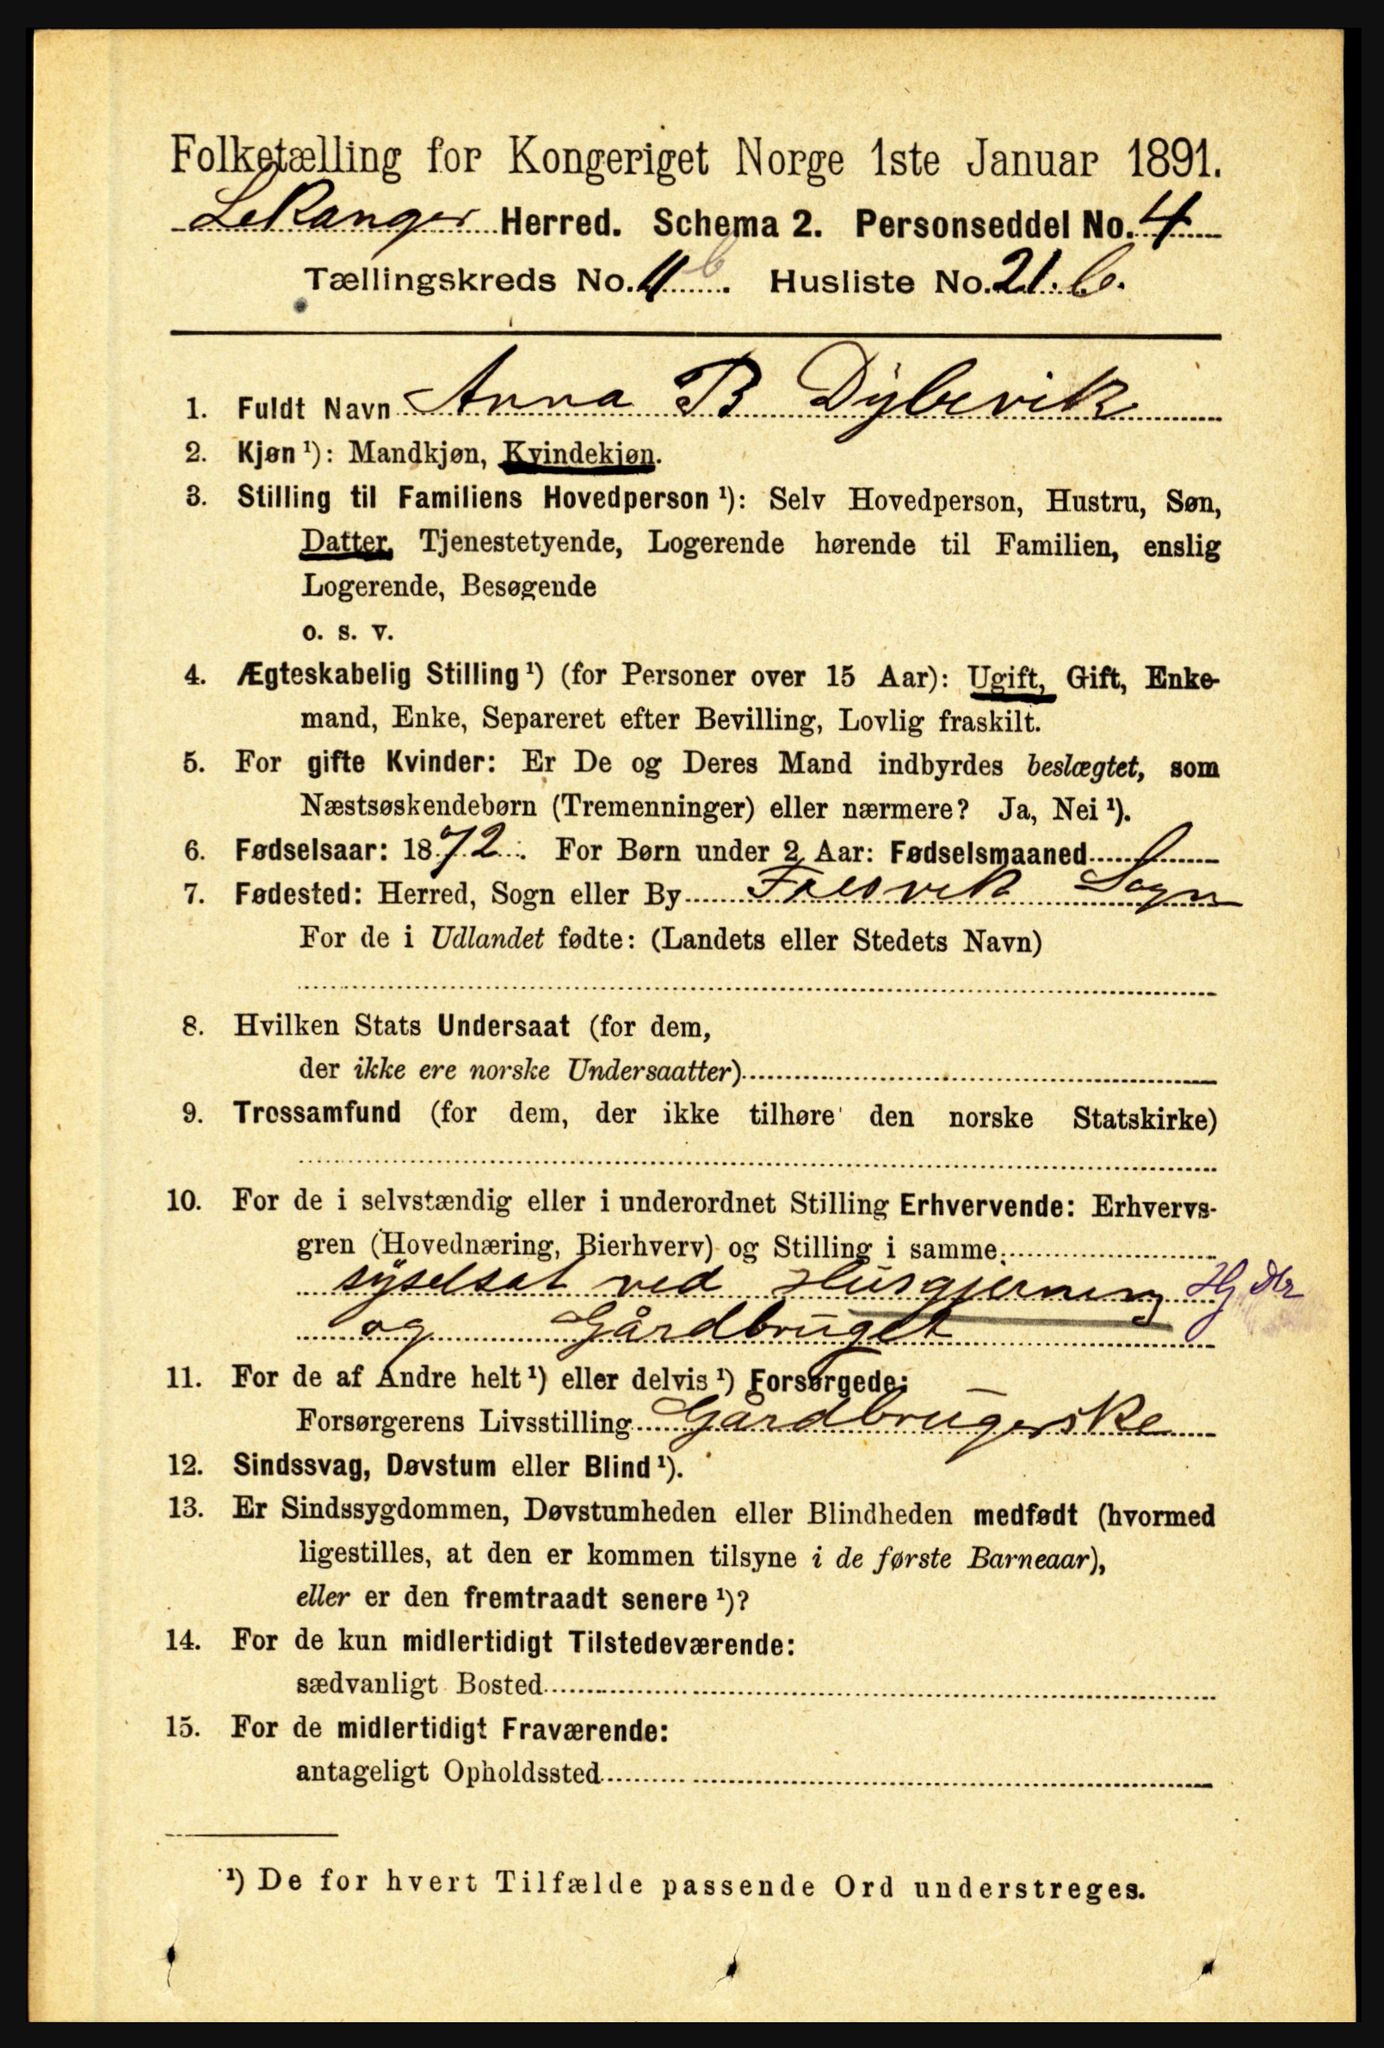 Folketælling for Kongeriget Norge 1ste Januar 1891.
Lekanger Herred. Schema 2. Personseddel No. 4
Tællingskreds No. 4 b. Husliste No. 21. b.
1. Fuldt Navn Anna B Dybevik
2. Kjøn ¹): Mandkjøn, Kvindekjøn.
3. Stilling til Familiens Hovedperson ¹): Selv Hovedperson, Hustru, Søn,
Datter, Tjenestetyende, Logerende hørende til Familien, enslig
Logerende, Besøgende
o. s. v.
4. Ægteskabelig Stilling ¹) (for Personer over 15 Aar): Ugift, Gift, Enke-
mand, Enke, Separeret efter Bevilling, Lovlig fraskilt.
5. For gifte Kvinder: Er De og Deres Mand indbyrdes beslægtet, som
Næstsøskendebørn (Tremenninger) eller nærmere? Ja, Nei ¹).
6. Fødselsaar: 1872. For Børn under 2 Aar: Fødselsmaaned
7. Fødested: Herred, Sogn eller By Fresvik Sogn
For de i Udlandet fødte: (Landets eller Stedets Navn)
8. Hvilken Stats Undersaat (for dem,
der ikke ere norske Undersaatter)
9. Trossamfund (for dem, der ikke tilhøre den norske Statskirke)
10. For de i selvstændig eller i underordnet Stilling Erhvervende: Erhvervs-
gren (Hovednæring, Bierhverv) og Stilling i samme
syselsat ved Husgjerning Hj dtr
og Gårdbruget
11. For de af Andre helt ¹) eller delvis ¹) Forsørgede:
Forsørgerens Livsstilling Gårdbrugerske
12. Sindssvag, Døvstum eller Blind ¹).
13. Er Sindssygdommen, Døvstumheden eller Blindheden medfødt (hvormed
ligestilles, at den er kommen tilsyne i de første Barneaar),
eller er den fremtraadt senere ¹)?
14. For de kun midlertidigt Tilstedeværende:
sædvanligt Bosted
15. For de midlertidigt Fraværende:
antageligt Opholdssted
¹) De for hvert Tilfælde passende Ord understreges.